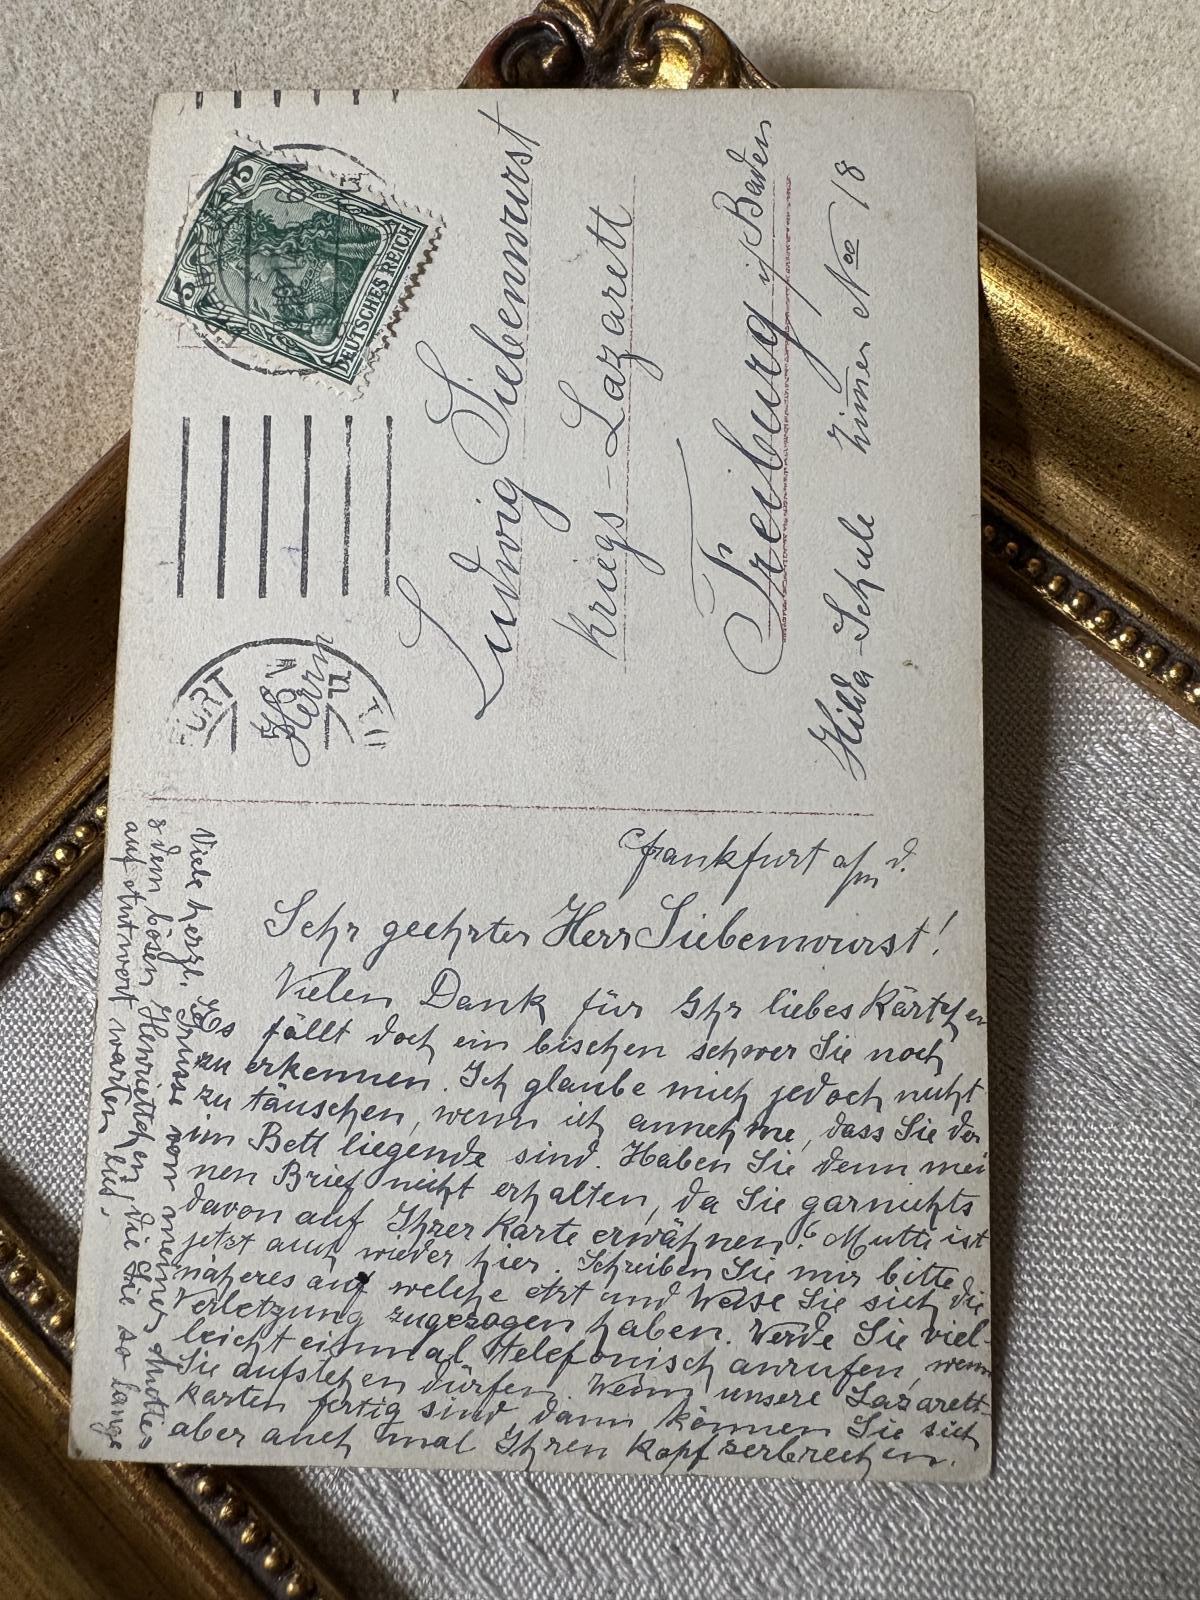 DEUTSCHES REICH
5
5
FURT
Herrn
Ludwig Siebenwurst
Kriegs-Lazarett
Freiburg i/Baden
Hilda-Schule Zimmer No 18
Frankfurt a/m d.
Sehr geehrter Herr Siebenwurst!
Vielen Dank für Ihr liebes Kärtchen
Es fällt doch ein bischen schwer Sie noch
zu erkennen. Ich glaube mich jedoch nicht
zu täuschen, wenn ich annehme, dass Sie der
im Bett liegende sind. Haben Sie denn mei
nen Brief nicht erhalten, da Sie garnichts
davon auf Ihrer Karte erwähnen? Mutti ist
jetzt auch wieder hier. Schreiben Sie mir bitte
näheres auf welche Art und Weise Sie sich die
Verletzung zugezogen haben. Werde Sie viel-
leicht einmal telefonisch anrufen, wenn
Sie aufstehen dürfen. Wenn unsere Lazarett-
karten fertig sind, dann können Sie sich
aber auch mal Ihren Kopf zerbrechen.
Viele herzl. Grüsse von meiner Mutter
& dem bösen Henriettchen, die Sie so lange
auf Antwort warten ließ.